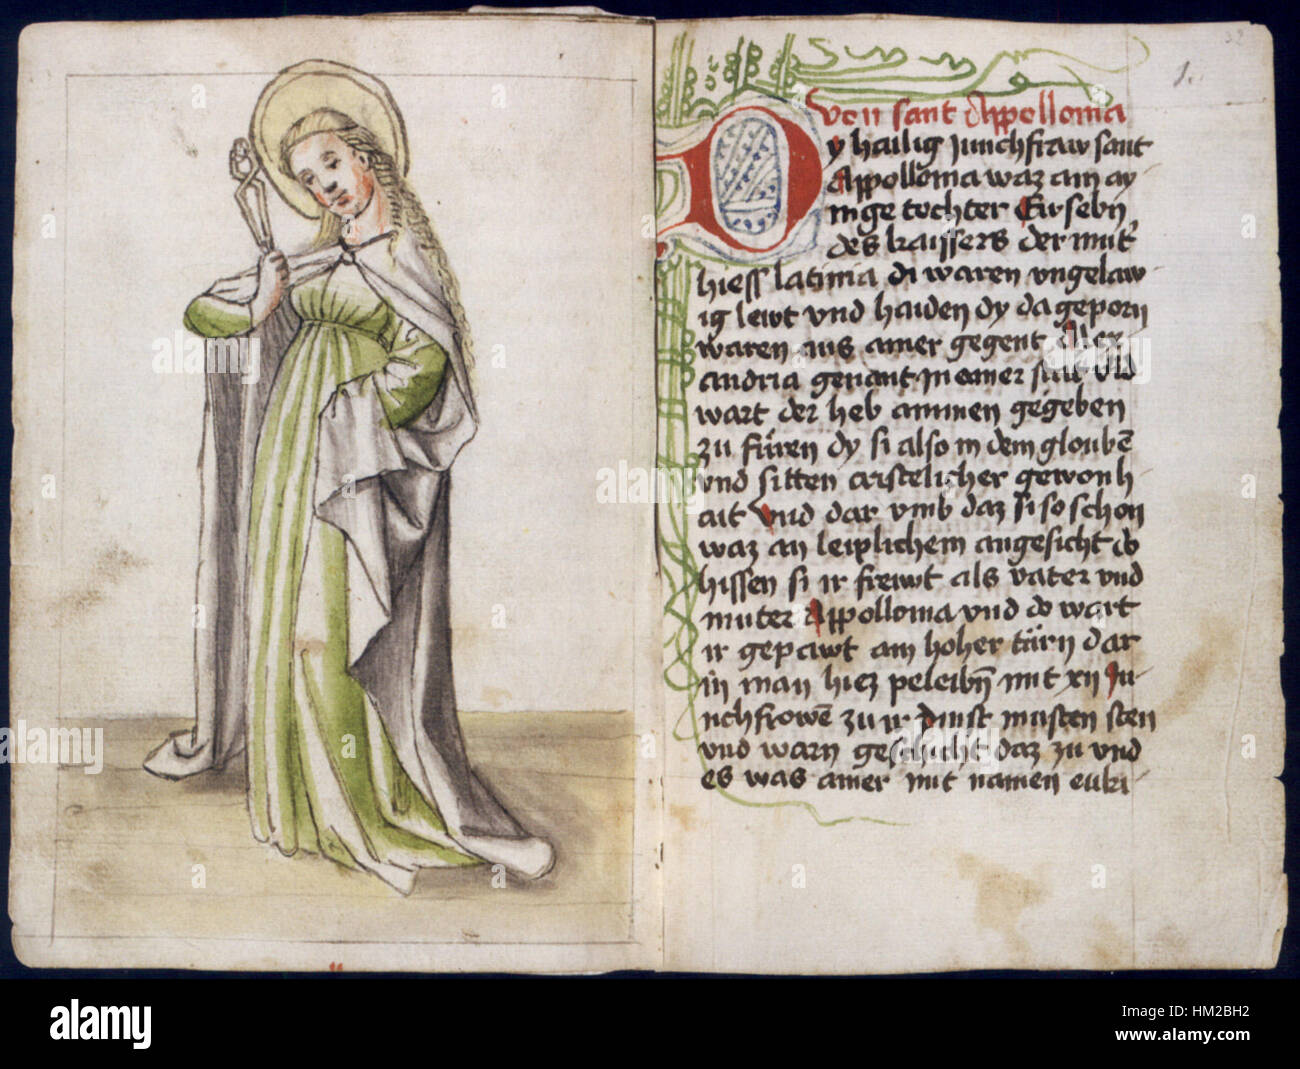 32
1.
Von sant Appollonia
Dy heilig Junchfraw sant
Appollonia waz ain ay
nige tochter Ewsebij
des kaissers der mut'
hiess latinia di waren vngelaw-
ig lewt vnd haiden dy da geporn
waren aus ainer gegent Alex
andria genant In ainer stat vnd
wart der heb ammen gegeben
zu füren dy si also in dem gloubē
vnd sitten cristelicher gewonh
ait Vnd dar vmb daz si so schon
waz an leiplichem angesicht do
hissen si ir freiwt als vater vnd
muter Appollonia vnd do wart
ir gepawt ain hoher türn dar
in man hiez peleibn mit xii Ju-
nchfrowē zu ir dinst musten sten
vnd warn geschicht daz zu vnd
es was ainer mit namen euki-
alamy
HM2BH2
www.alamy.com